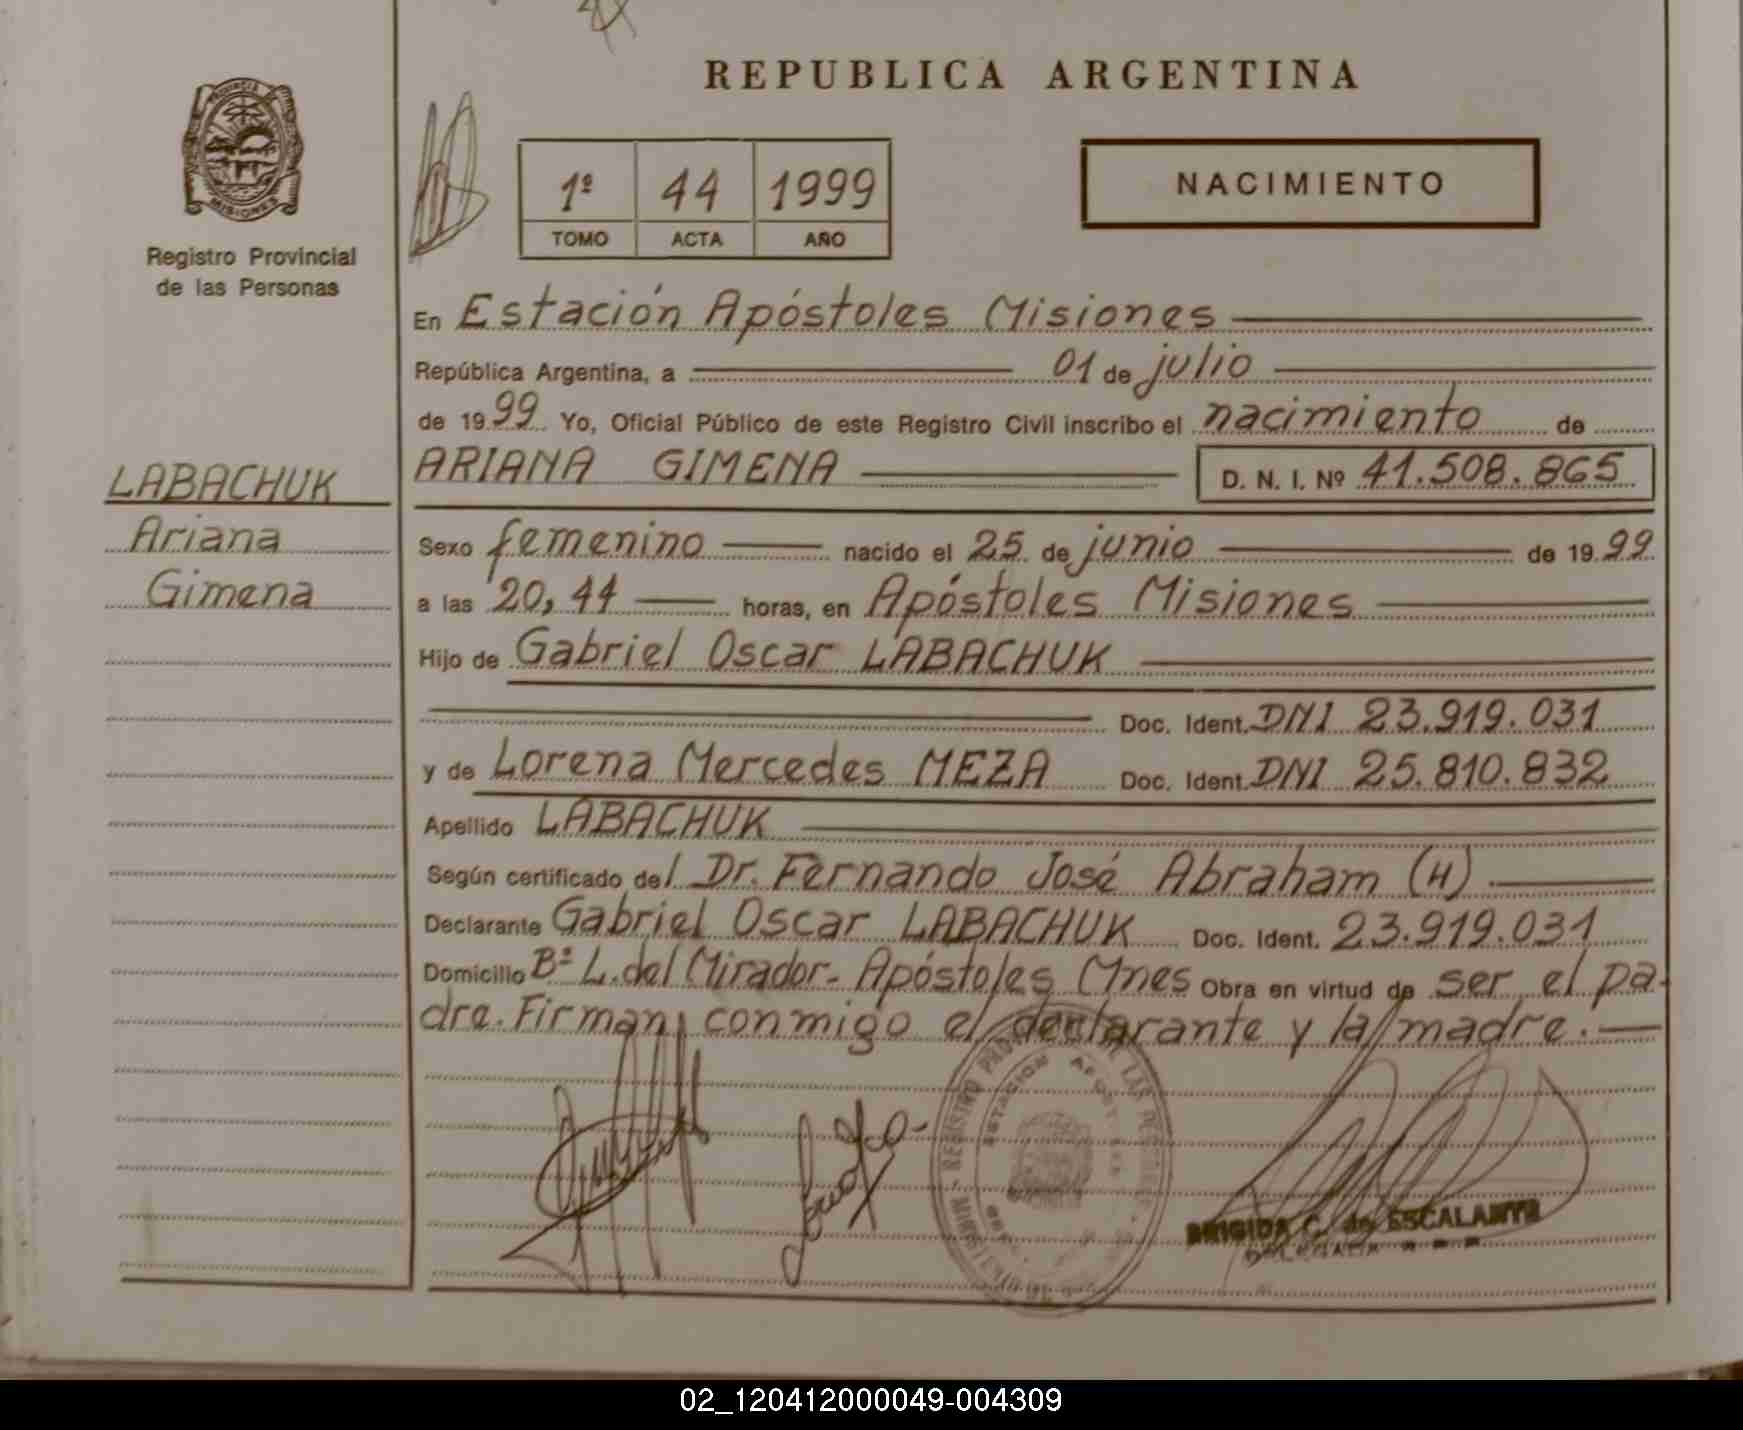 REPUBLICA ARGENTINA
PROVINCIA DE MISIONES
Registro Provincial
de las Personas
1º 44 1999
TOMO ACTA AÑO
NACIMIENTO
En Estación Apóstoles Misiones
República Argentina, a 01 de julio
de 1999 Yo, Oficial Público de este Registro Civil inscribo el nacimiento de
ARIANA GIMENA D. N. I. Nº 41.508.865
LABACHUK
Ariana
Gimena
Sexo femenino nacido el 25 de junio de 1999
a las 20,44 horas, en Apóstoles Misiones
Hijo de Gabriel Oscar LABACHUK
Doc. Ident. DNI 23.919.031
y de Lorena Mercedes MEZA Doc. Ident. DNI 25.810.832
Apellido LABACHUK
Según certificado del Dr. Fernando José Abraham (H)
Declarante Gabriel Oscar LABACHUK Doc. Ident. 23.919.031
Domicilio Bº L. del Mirador - Apóstoles Mnes Obra en virtud de ser el pa-
dre. Firman conmigo el declarante y la madre.
REGISTRO DE LAS
ESTACION
BRIGIDA C. de ESCALANTE
DELEGADA
02_120412000049-004309